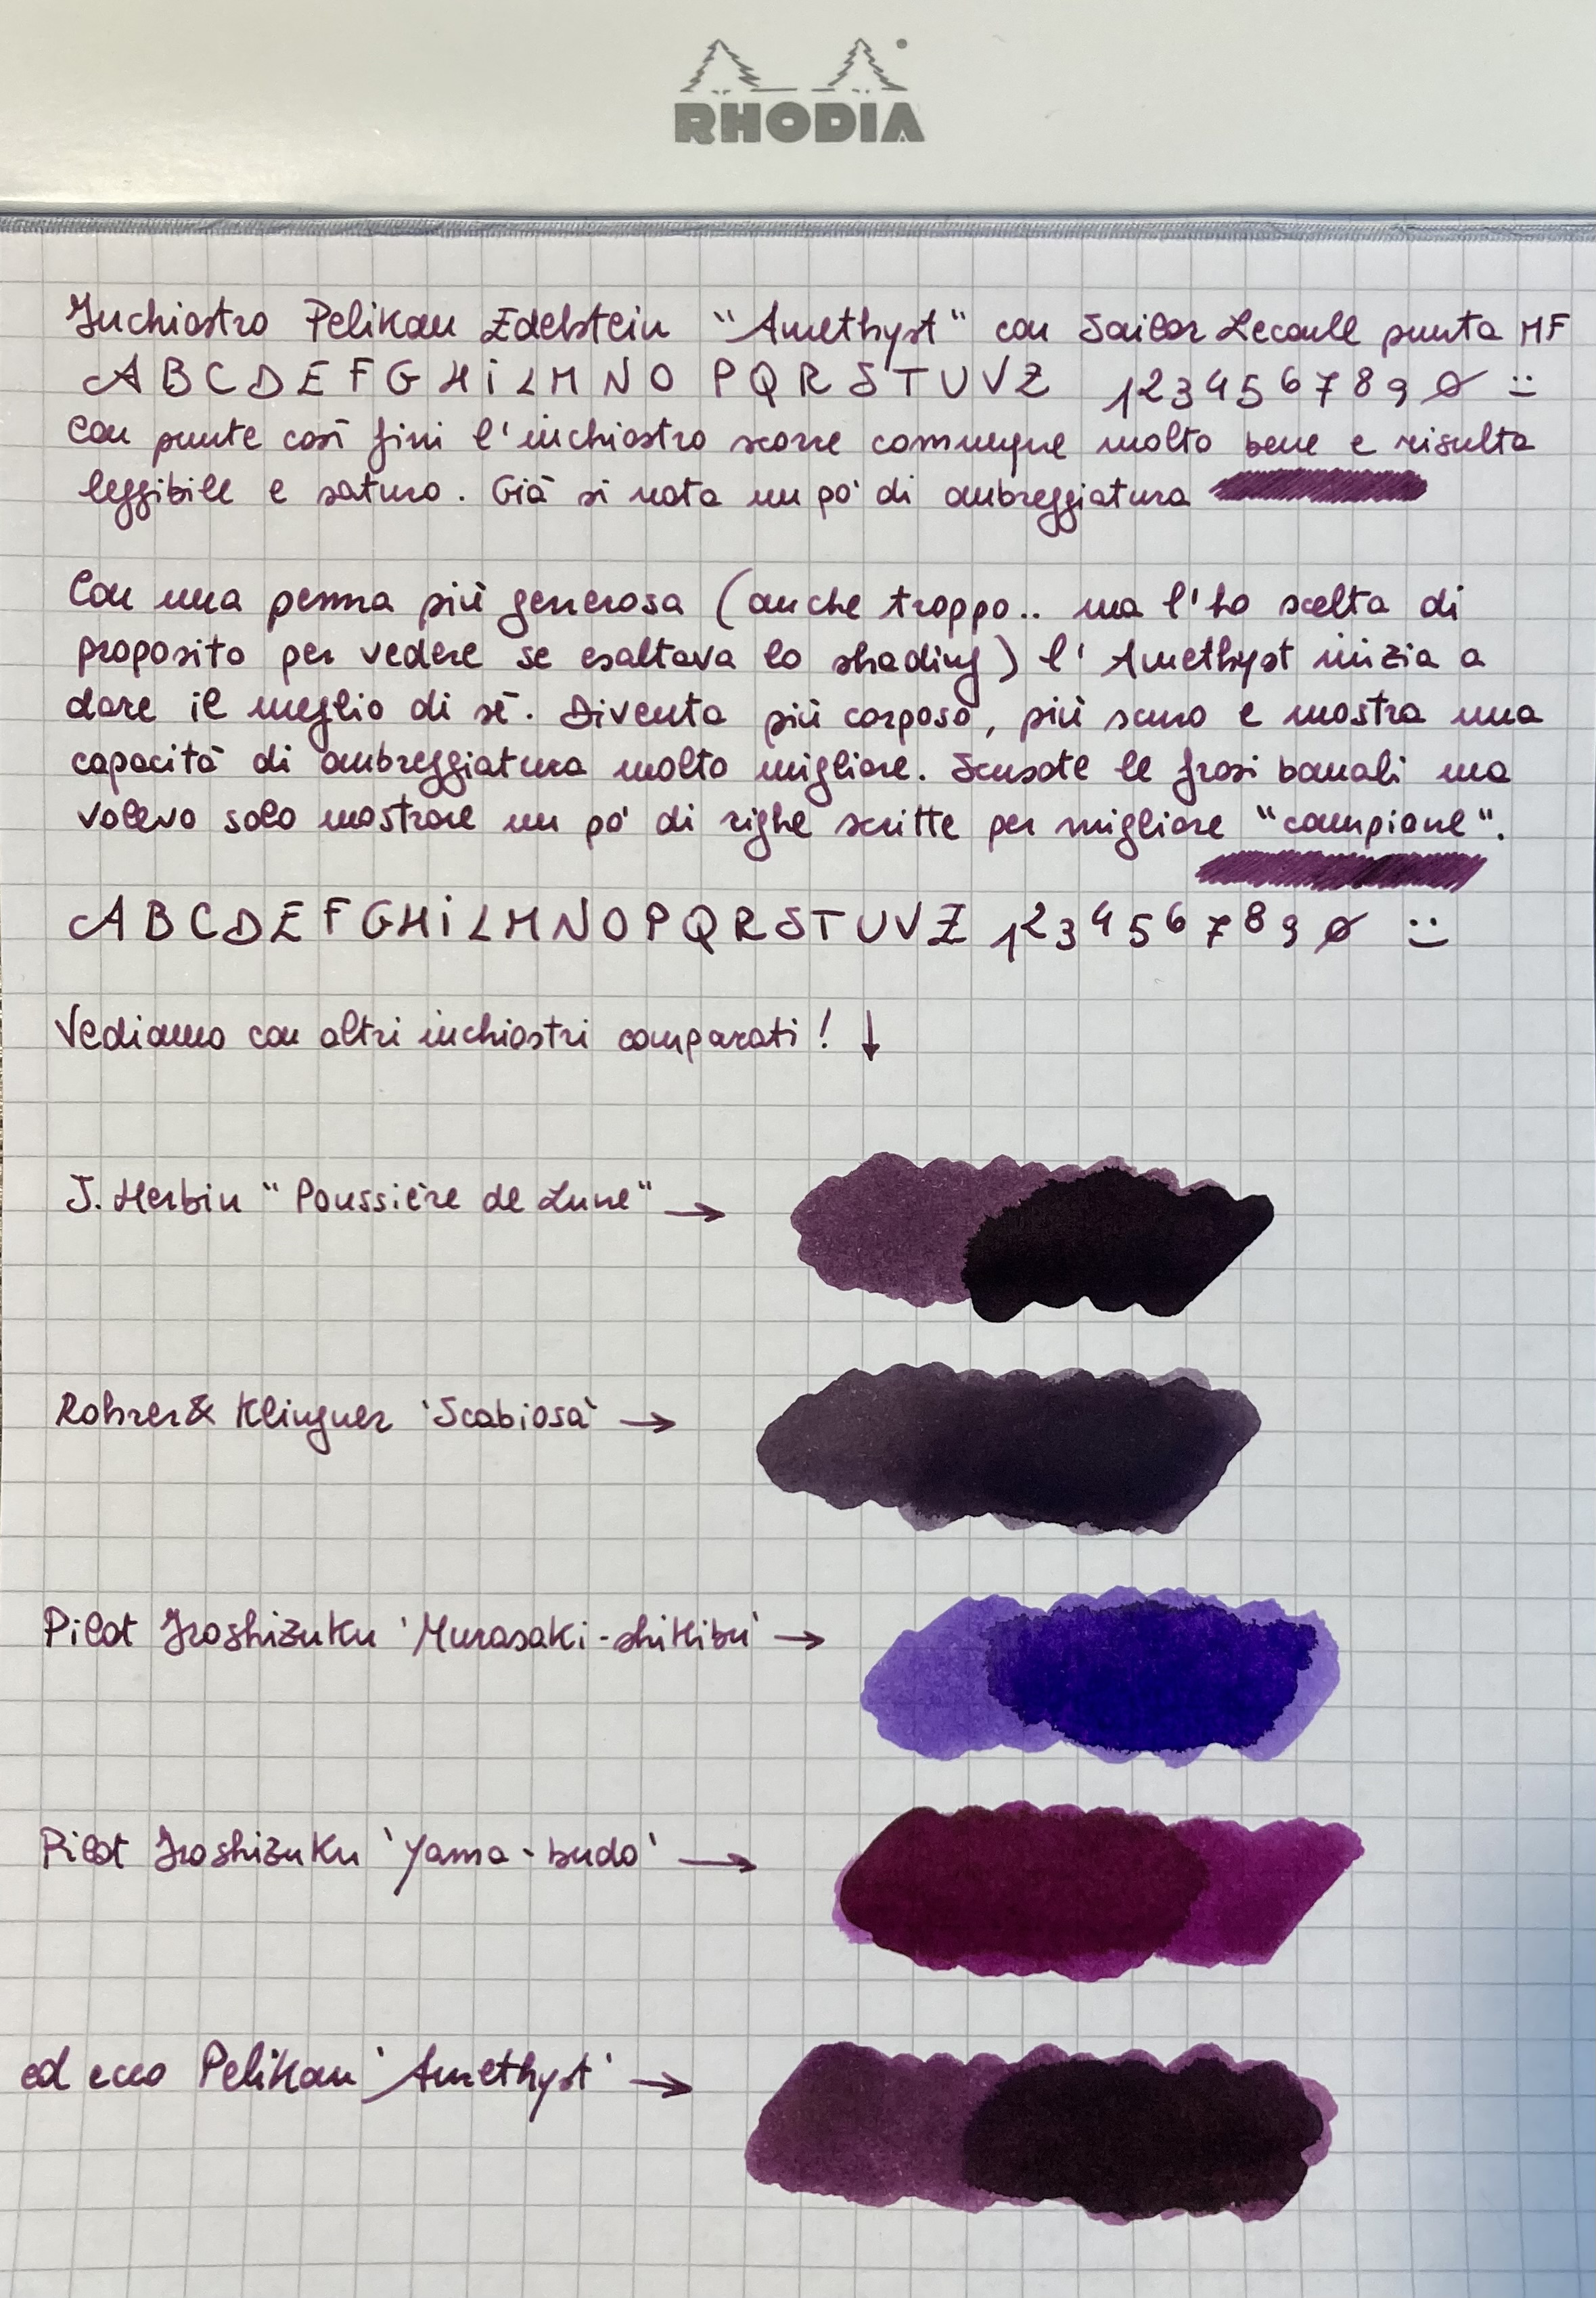 RHODIA
Inchiostro Pelikan Edelstein "Amethyst" con Sailor Lecoule punta MF
A B C D E F G H i L M N O P Q R S T U V Z 1 2 3 4 5 6 7 8 9 0 :)
Con punte così fini l'inchiostro scorre comunque molto bene e risulta
leggibile e saturo. Già si nota un po' di ombreggiatura
Con una penna più generosa (anche troppo.. ma l'ho scelta di
proposito per vedere se esaltava lo shading) l'Amethyst inizia a
dare il meglio di sé. Diventa più corposo, più scuro e mostra una
capacità di ombreggiatura molto migliore. Scusate le frasi banali ma
volevo solo mostrare un po' di righe scritte per migliore "campione".
A B C D E F G H i L M N O P Q R S T U V Z 1 2 3 4 5 6 7 8 9 0 :)
Vediamo con altri inchiostri comparati! ↓
J. Herbin "Poussière de Lune" →
Rohrer & Klingner 'Scabiosa' →
Pilot Iroshizuku 'Murasaki-shikibu' →
Pilot Iroshizuku 'Yama-budo' →
ed ecco Pelikan 'Amethyst' →